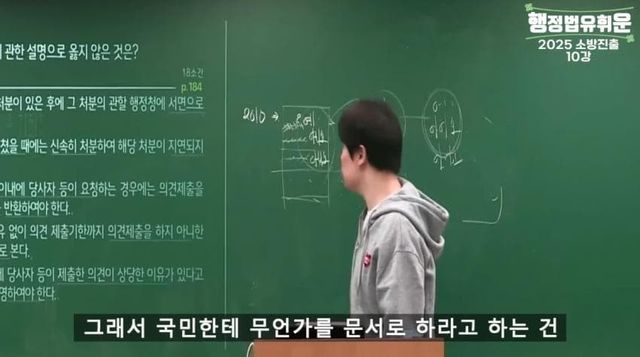 행정법유휘운
2025 소방진출
10강
관한 설명으로 옳지 않은 것은?
18소간
p.184
처분이 있은 후에 그 처분의 관할 행정청에 서면으로
쳤을 때에는 신속히 처분하여 해당 처분이 지연되지
이내에 당사자 등이 요청하는 경우에는 의견제출을
반환하여야 한다.
없이 의견 제출기한까지 의견제출을 하지 아니한
로 본다.
에 당사자 등이 제출한 의견이 상당한 이유가 있다고
영하여야 한다.
2010 →
그래서 국민한테 무언가를 문서로 하라고 하는 건